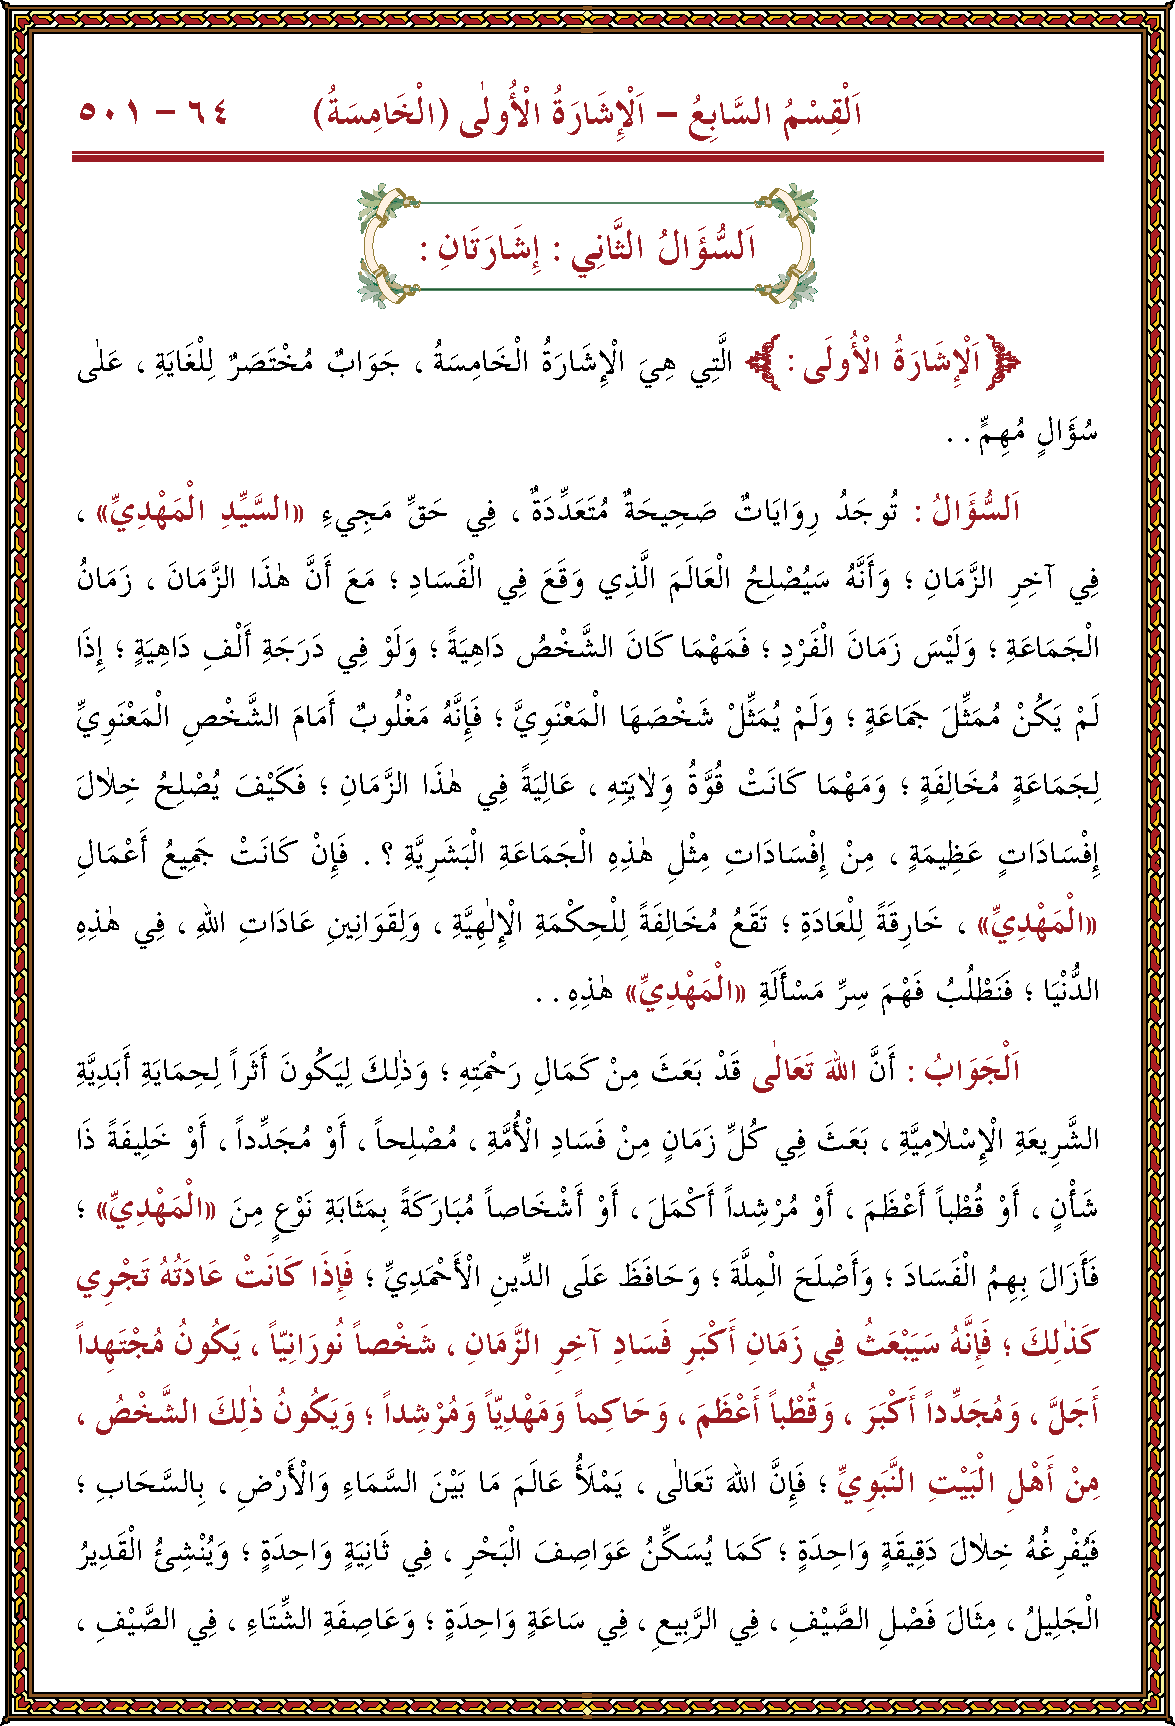 اَلْقِسْمُ السَّابِعُ – اَلْإِشَارَةُ الْأُولٰى (الْخَامِسَةُ) ٦٤ – ٥٠١
اَلسُّؤَالُ الثَّانِي : إِشَارَتَانِ :
اَلْإِشَارَةُ الْأُولَى : الَّتِي هِيَ الْإِشَارَةُ الْخَامِسَةُ ، جَوَابٌ مُخْتَصَرٌ لِلْغَايَةِ ، عَلٰى
سُؤَالٍ مُهِمٍّ . .
اَلسُّؤَالُ : تُوجَدُ رِوَايَاتٌ صَحِيحَةٌ مُتَعَدِّدَةٌ ، فِي حَقِّ مَجِيءِ «السَّيِّدِ الْمَهْدِيِّ» ،
فِي آخِرِ الزَّمَانِ ؛ وَأَنَّهُ سَيُصْلِحُ الْعَالَمَ الَّذِي وَقَعَ فِي الْفَسَادِ ؛ مَعَ أَنَّ هٰذَا الزَّمَانَ ، زَمَانُ
الْجَمَاعَةِ ؛ وَلَيْسَ زَمَانَ الْفَرْدِ ؛ فَمَهْمَا كَانَ الشَّخْصُ دَاهِيَةً ؛ وَلَوْ فِي دَرَجَةِ أَلْفِ دَاهِيَةٍ ؛ إِذَا
لَمْ يَكُنْ مُمَثِّلَ جَمَاعَةٍ ؛ وَلَمْ يُمَثِّلْ شَخْصَهَا الْمَعْنَوِيَّ ؛ فَإِنَّهُ مَغْلُوبٌ أَمَامَ الشَّخْصِ الْمَعْنَوِيِّ
لِجَمَاعَةٍ مُخَالِفَةٍ ؛ وَمَهْمَا كَانَتْ قُوَّةُ وِلَايَتِهِ ، عَالِيَةً فِي هٰذَا الزَّمَانِ ؛ فَكَيْفَ يُصْلِحُ خِلَالَ
إِفْسَادَاتٍ عَظِيمَةٍ ، مِنْ إِفْسَادَاتِ مِثْلِ هٰذِهِ الْجَمَاعَةِ الْبَشَرِيَّةِ ؟ . فَإِنْ كَانَتْ جَمِيعُ أَعْمَالِ
«الْمَهْدِيِّ» ، خَارِقَةً لِلْعَادَةِ ؛ تَقَعُ مُخَالِفَةً لِلْحِكْمَةِ الْإِلٰهِيَّةِ ، وَلِقَوَانِينِ عَادَاتِ اللهِ ، فِي هٰذِهِ
الدُّنْيَا ؛ فَنَطْلُبُ فَهْمَ سِرِّ مَسْأَلَةِ «الْمَهْدِيِّ» هٰذِهِ . .
اَلْجَوَابُ : أَنَّ اللهَ تَعَالٰى قَدْ بَعَثَ مِنْ كَمَالِ رَحْمَتِهِ ؛ وَذٰلِكَ لِيَكُونَ أَثَراً لِحِمَايَةِ أَبَدِيَّةِ
الشَّرِيعَةِ الْإِسْلَامِيَّةِ ، بَعَثَ فِي كُلِّ زَمَانٍ مِنْ فَسَادِ الْأُمَّةِ ، مُصْلِحاً ، أَوْ مُجَدِّداً ، أَوْ خَلِيفَةً ذَا
شَأْنٍ ، أَوْ قُطْباً أَعْظَمَ ، أَوْ مُرْشِداً أَكْمَلَ ، أَوْ أَشْخَاصاً مُبَارَكَةً بِمَثَابَةِ نَوْعٍ مِنَ «الْمَهْدِيِّ» ؛
فَأَزَالَ بِهِمُ الْفَسَادَ ؛ وَأَصْلَحَ الْمِلَّةَ ؛ وَحَافَظَ عَلَى الدِّينِ الْأَحْمَدِيِّ ؛ فَإِذَا كَانَتْ عَادَتُهُ تَجْرِي
كَذٰلِكَ ؛ فَإِنَّهُ سَيَبْعَثُ فِي زَمَانِ أَكْبَرِ فَسَادِ آخِرِ الزَّمَانِ ، شَخْصاً نُورَانِيّاً ، يَكُونُ مُجْتَهِداً
أَجَلَّ ، وَمُجَدِّداً أَكْبَرَ ، وَقُطْباً أَعْظَمَ ، وَحَاكِماً وَمَهْدِيّاً وَمُرْشِداً ؛ وَيَكُونُ ذٰلِكَ الشَّخْصُ ،
مِنْ أَهْلِ الْبَيْتِ النَّبَوِيِّ ؛ فَإِنَّ اللهَ تَعَالٰى ، يَمْلَأُ عَالَمَ مَا بَيْنَ السَّمَاءِ وَالْأَرْضِ ، بِالسَّحَابِ ؛
فَيُفْرِغُهُ خِلَالَ دَقِيقَةٍ وَاحِدَةٍ ؛ كَمَا يُسَكِّنُ عَوَاصِفَ الْبَحْرِ ، فِي ثَانِيَةٍ وَاحِدَةٍ ؛ وَيُنْشِئُ الْقَدِيرُ
الْجَلِيلُ ، مِثَالَ فَصْلِ الصَّيْفِ ، فِي الرَّبِيعِ ، فِي سَاعَةٍ وَاحِدَةٍ ؛ وَعَاصِفَةِ الشِّتَاءِ ، فِي الصَّيْفِ ،